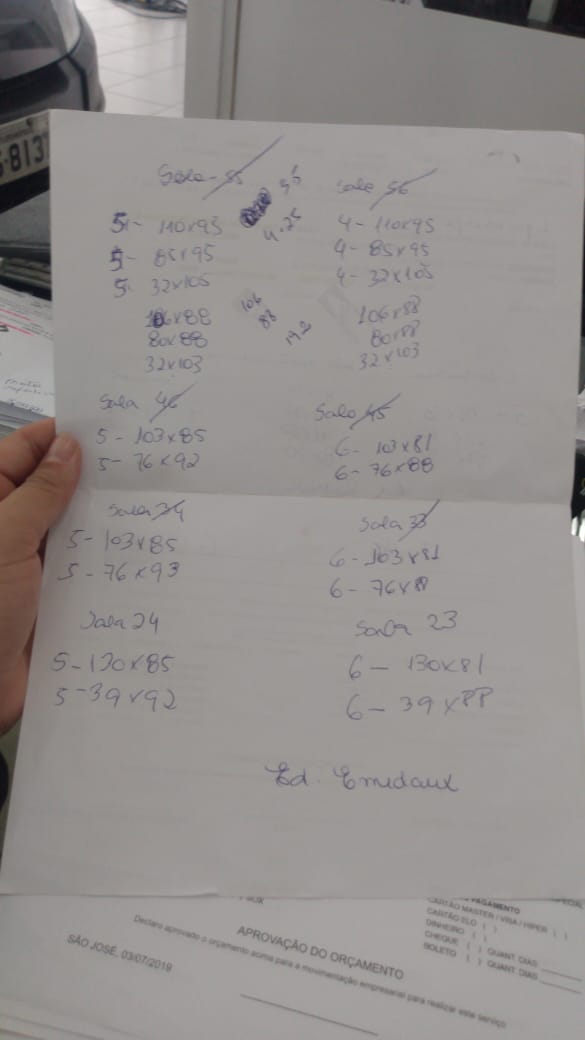 Sala - 55
4.25
5 - 110x95
5 - 85x95
5 - 32x105
106x88
80x88
32x103
106
88
Sala 56
4 - 110x95
4 - 85x95
4 - 32x105
106x88
80x88
32x103
Sala 46
5 - 103x85
5 - 76x92
Sala 45
6 - 103x81
6 - 76x88
Sala 34
5 - 103x85
5 - 76x93
Sala 33
6 - 103x81
6 - 76x88
Sala 24
5 - 130x85
5 - 39x92
Sala 23
6 - 130x81
6 - 39x88
Ed.
PAGAMENTO
CARTÃO MASTER / VISA / HIPER ( )
CARTÃO ELO ( )
DINHEIRO ( )
CHEQUE ( ) QUANT DIAS
BOLETO ( ) QUANT. DIAS
APROVAÇÃO DO ORÇAMENTO
Declaro aprovado o orçamento acima para a movimentação empresarial para realizar este serviço
SÃO JOSÉ, 03/07/2019